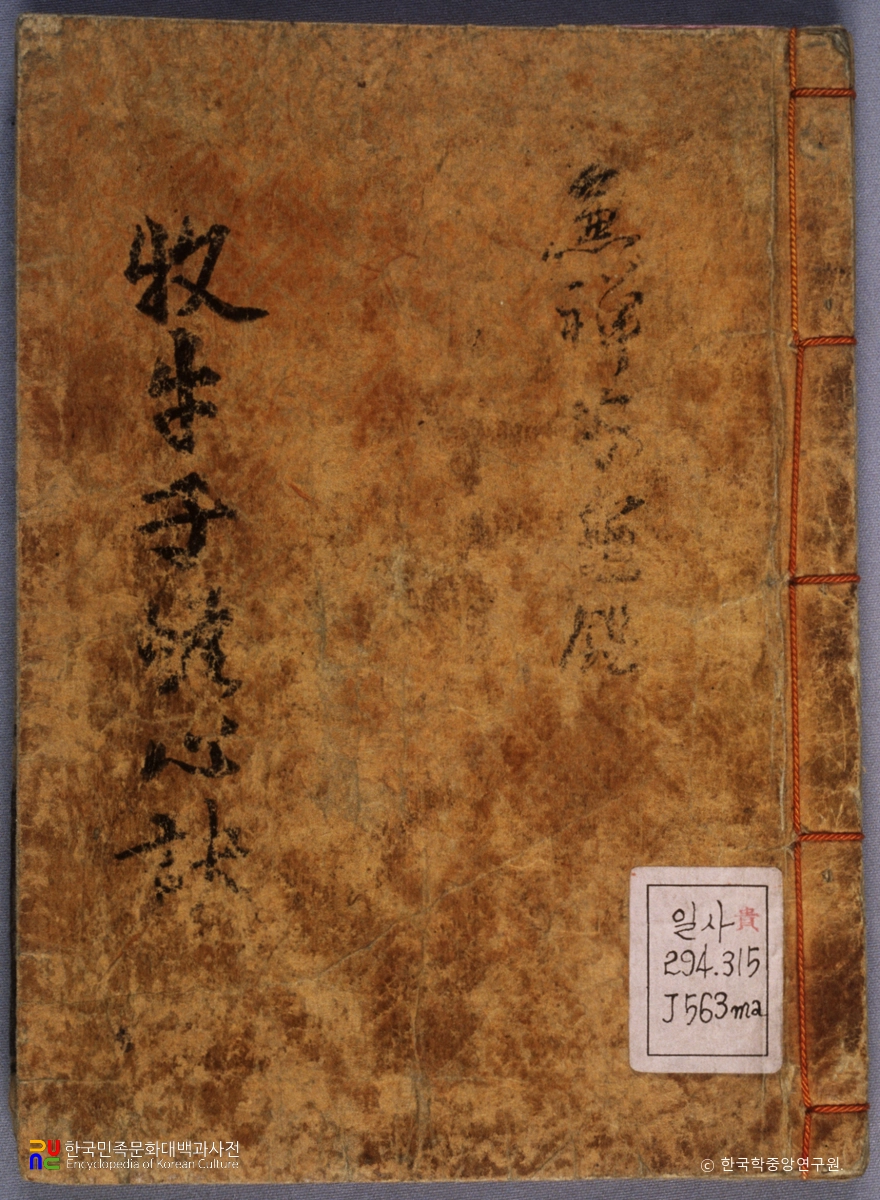 禪
牧牛子修心訣
일사 貴
294.315
J563ma
한국민족문화대백과사전
Encyclopedia of Korean Culture
© 한국학중앙연구원.